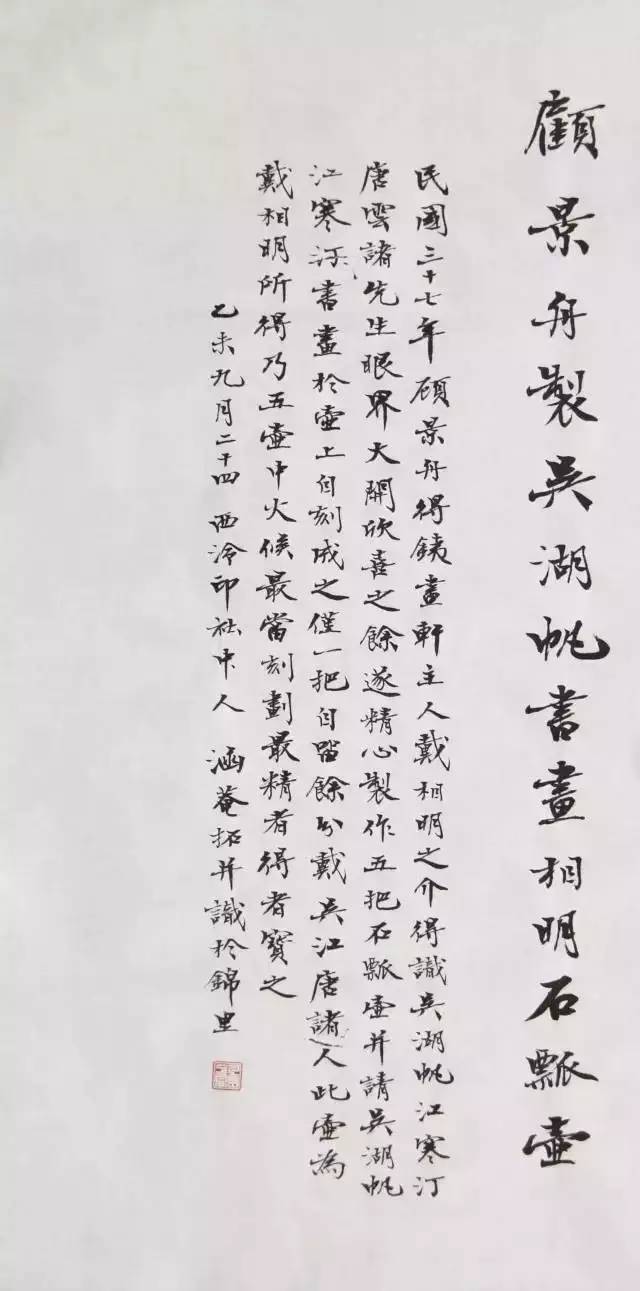 顧景舟製吳湖帆書畫相明石瓢壺
民國三十七年顧景舟得鐵畫軒主人戴相明之介得識吳湖帆江寒汀
唐雲諸先生眼界大開欣喜之餘遂精心製作五把石瓢壺并請吳湖帆
江寒汀書畫於壺上自刻成之僅一把自留餘分戴吳江唐諸人此壺為
戴相明所得乃五壺中火候最當刻劃最精者得者寶之
乙未九月二十四 西泠印社中人 涵菴拓并識於錦里